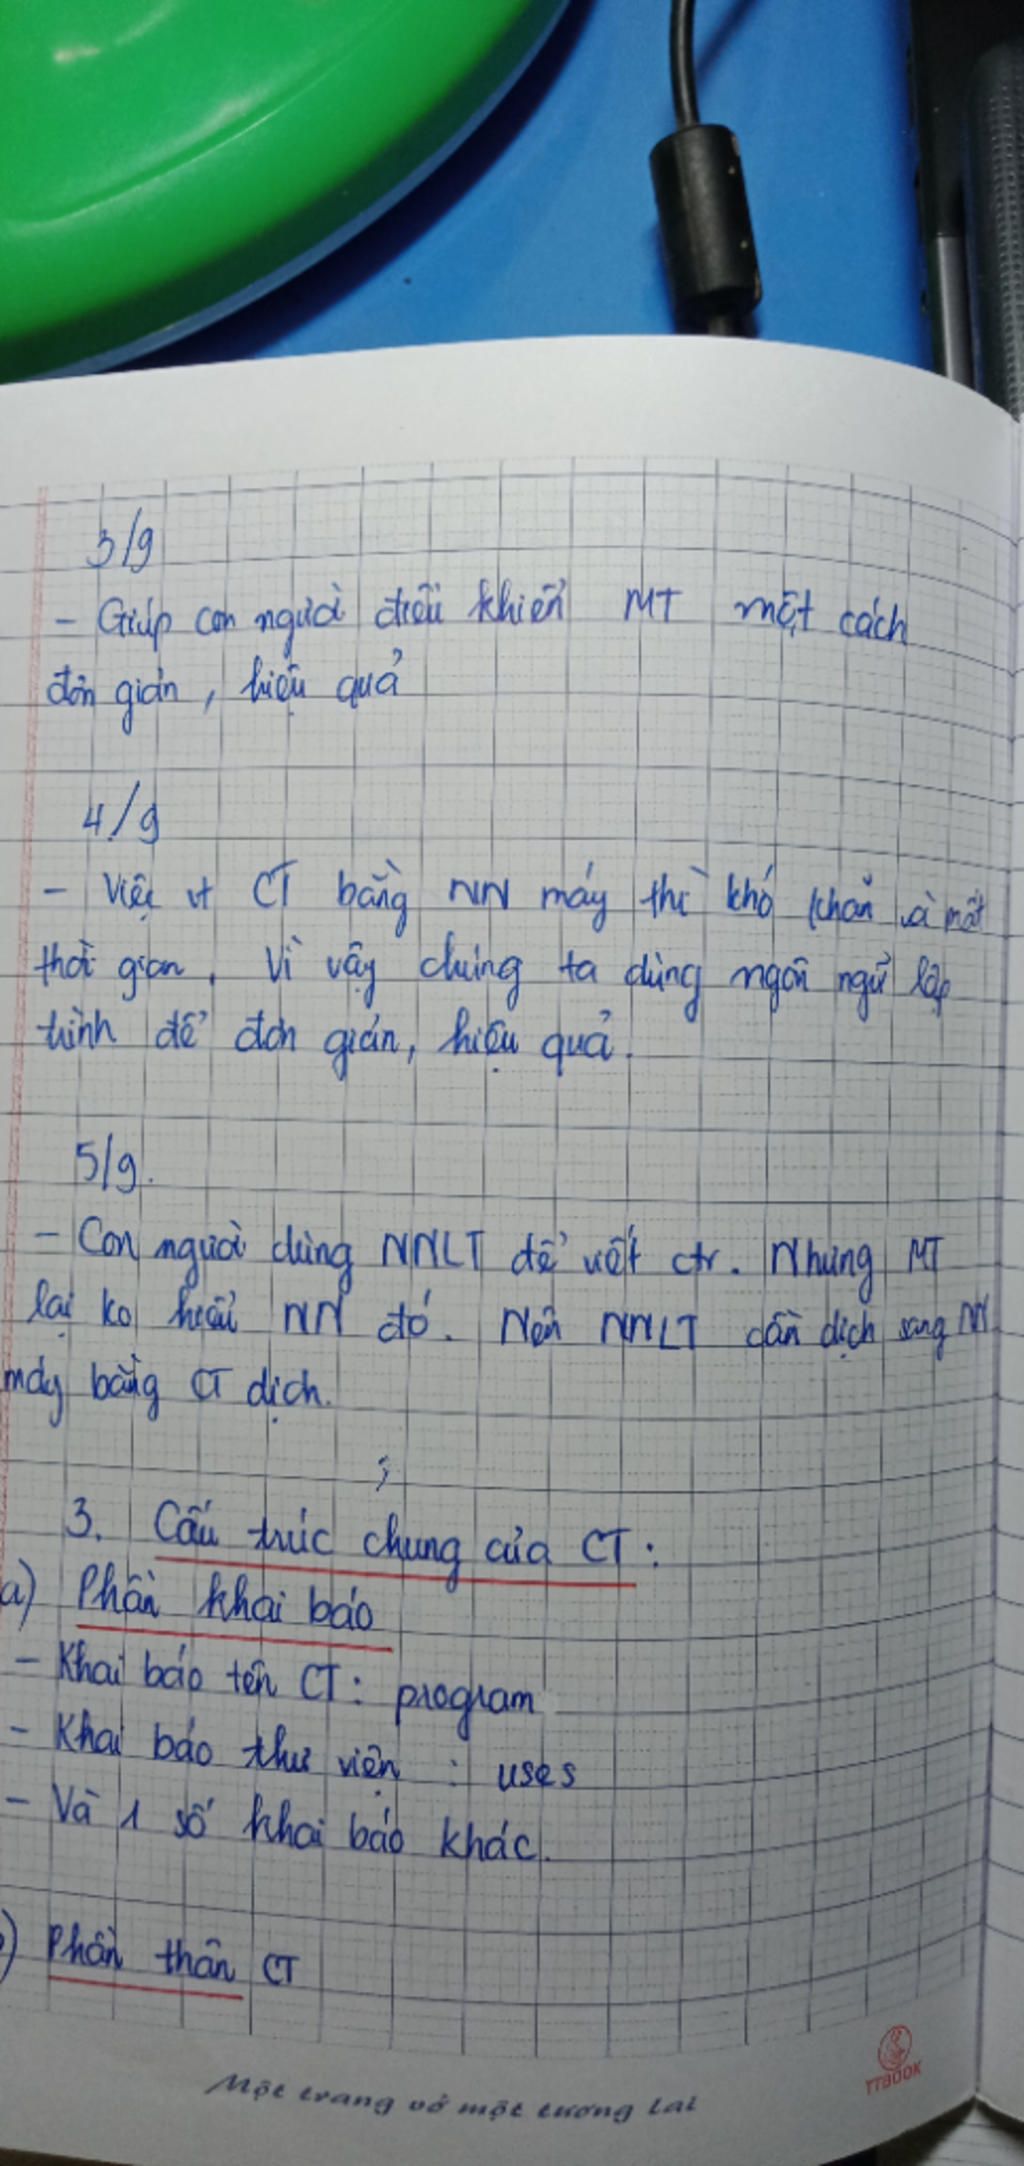 3/9
- Giúp con người điều khiển MT một cách
đơn giản, hiệu quả
4/9
- Việc vt CT bằng NN máy thì khó khăn và mất
thời gian. Vì vậy chúng ta dùng ngôn ngữ lập
trình để đơn giản, hiệu quả.
5/9.
- Con người dùng NNLT để viết ctr. Nhưng MT
lại ko hiểu NN đó. Nên NNLT cần dịch sang NN
máy bằng CT dịch.
3. Cấu trúc chung của CT:
a) Phần khai báo
- Khai báo tên CT: program
- Khai báo thư viện : uses
- Và 1 số khai báo khác.
) Phần thân CT
Một trang vở một tương lai
TTBOOK